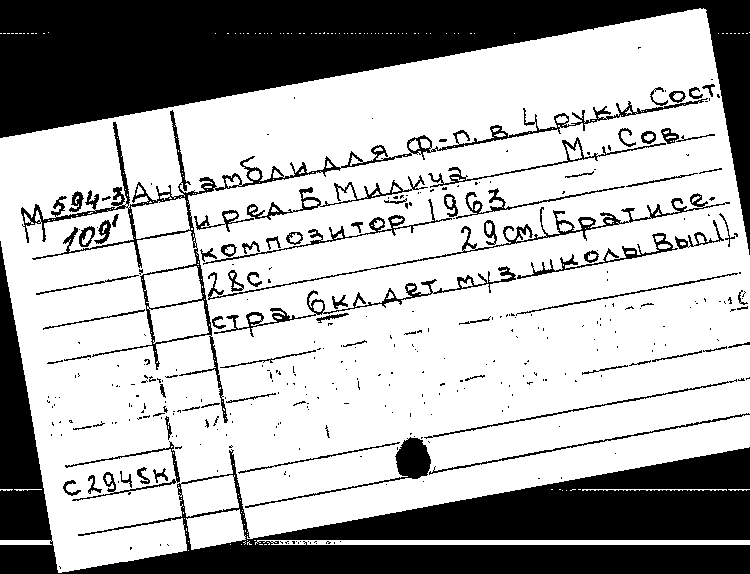 Ансамбли для ф-п. в 4 руки. Сост.
М 594-3
109'
и ред. Б. Милича. М., „Сов.
композитор", 1963
28с. 29см. (Брат и се-
стра. 6кл. дет. муз. школы. Вып. I).
С2945к